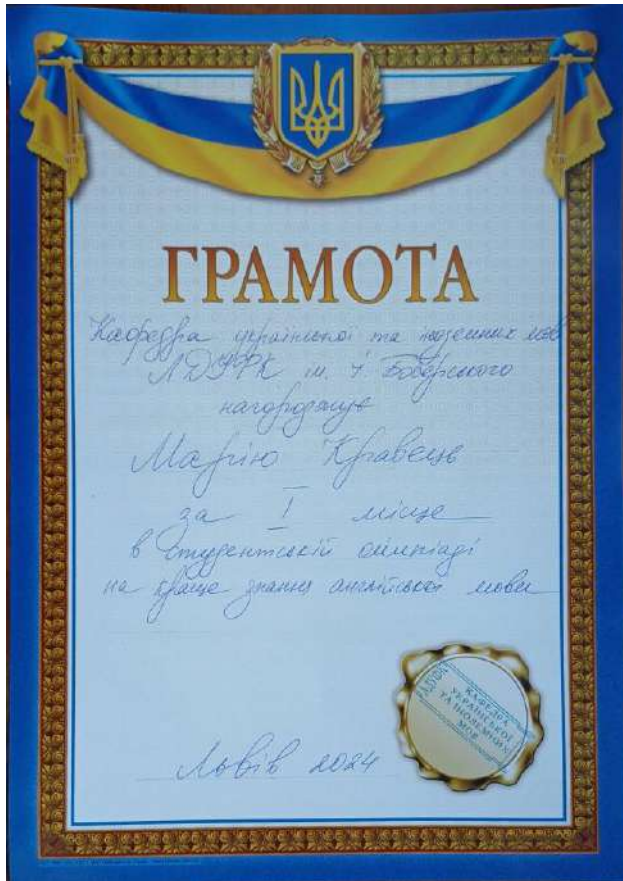 ГРАМОТА
Кафедра української та іноземних мов
ЛДУФК ім. І. Боберського
нагороджує
Марію Кравець
за І місце
в студентській олімпіаді
на краще знання англійської мови
ЛДУФК
КАФЕДРА
УКРАЇНСЬКОЇ
ТА ІНОЗЕМНИХ
МОВ
Львів 2024